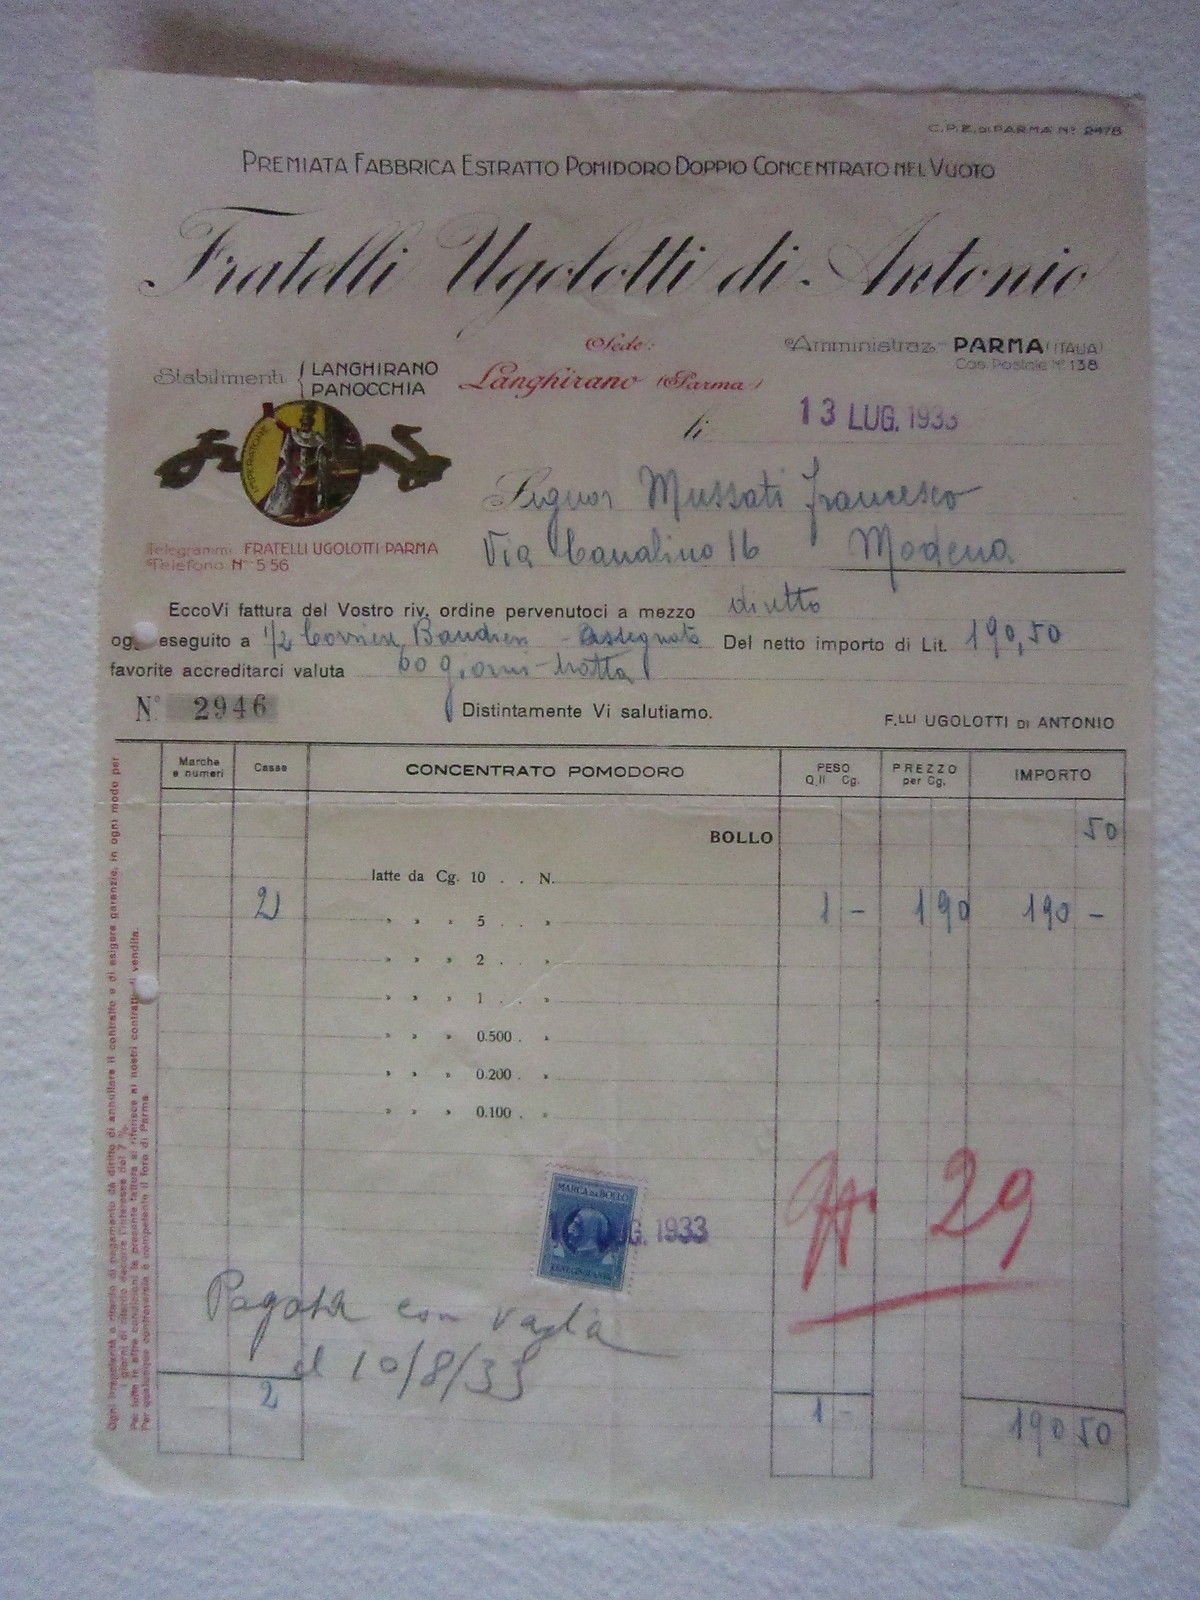 C.P.E. DI PARMA N° 2478
PREMIATA FABBRICA ESTRATTO POMIDORO DOPPIO CONCENTRATO NEL VUOTO
Fratelli Ugolotti di Antonio
Stabilimenti LANGHIRANO
PANOCCHIA
Sede:
Langhirano (Parma)
Amministraz. PARMA (ITALIA)
Cas. Postale N° 138
li 13 LUG. 1933
Signor Mussati Francesco
Via Canalino 16 Modena
Telegrammi FRATELLI UGOLOTTI-PARMA
Telefono N° 5-56
EccoVi fattura del Vostro riv. ordine pervenutoci a mezzo diretto
eseguito a 1/2 Assegnato Del netto importo di Lit. 190,50
favorite accreditarci valuta 60 giorni-tratta
N° 2946
Distintamente Vi salutiamo.
F.LLI UGOLOTTI DI ANTONIO
Marche e numeri Casse CONCENTRATO POMODORO PESO Q.li Cg. PREZZO per Cg. IMPORTO
BOLLO 50
latte da Cg. 10 . . N.
2 » » » 5 . . » 1 - 190 190 -
» » » 2 . . »
» » » 1 . . »
» » » 0.500 . »
» » » 0.200 . »
» » » 0.100 . »
MARCA DA BOLLO
LUG. 1933
29
Pagata con vaglia
il 10/8/33
2 1 - 190 50
Ogni irregolarità o ritardo di pagamento dà diritto di annullare il contratto e di esigere garanzie, in ogni modo per
i giorni di ritardo decorre l'interesse del 7 %.
Per tutte le altre condizioni la presente fattura si riferisce ai nostri contratti di vendita.
Per qualunque controversia è competente il foro di Parma.